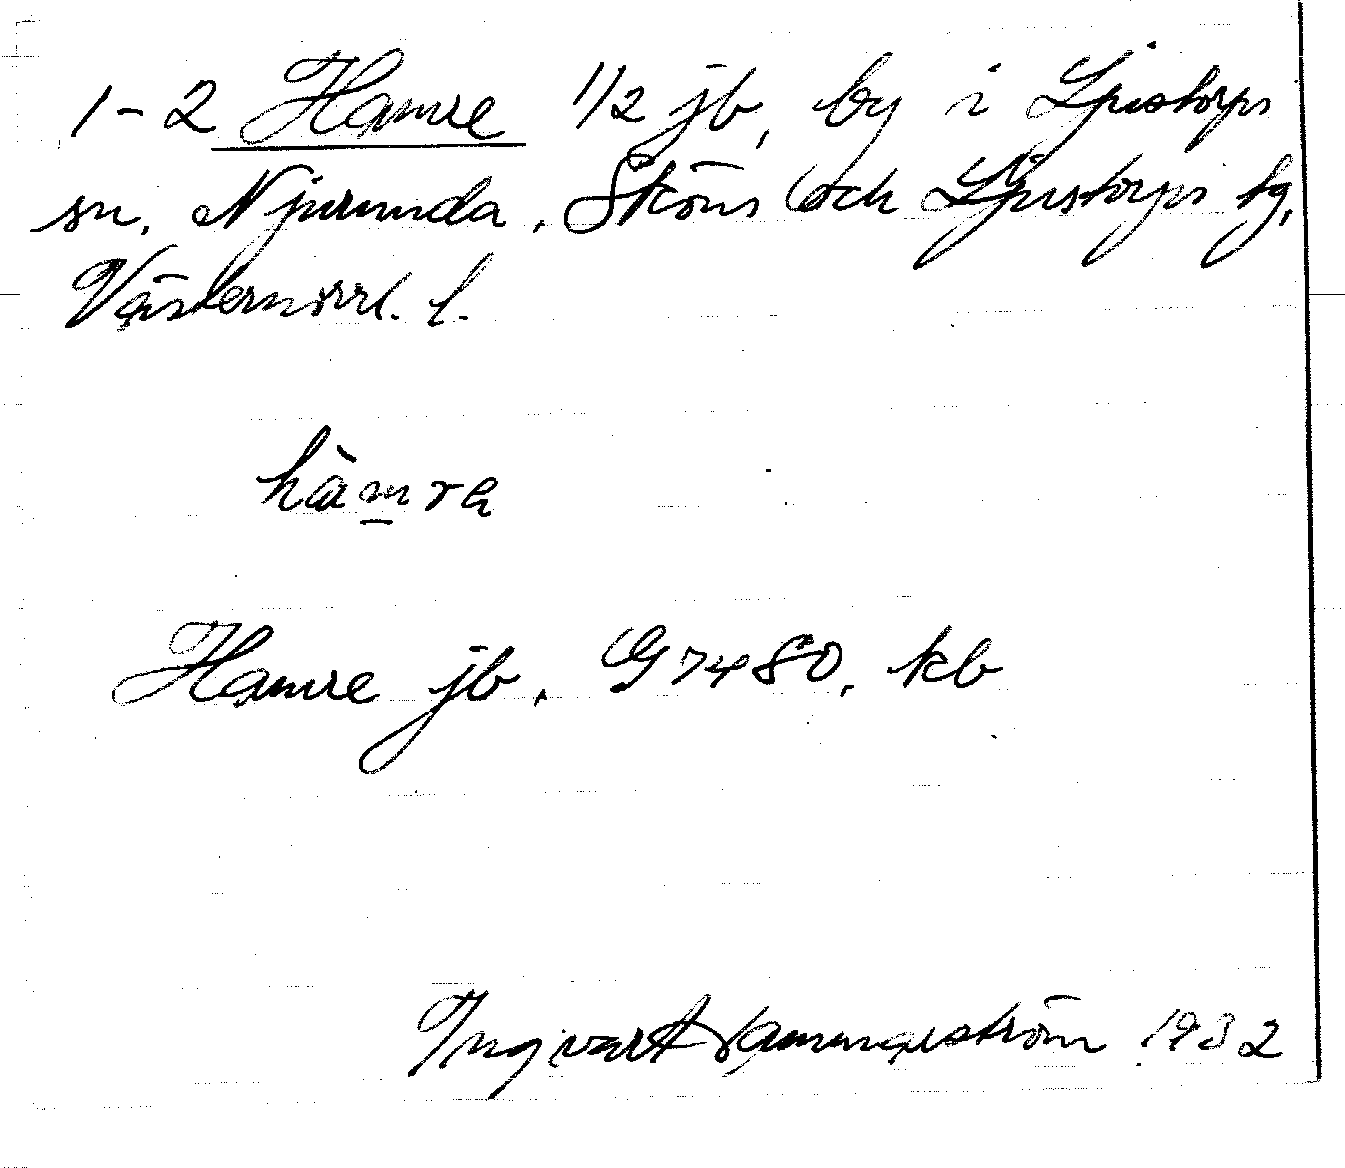 1-2 Hamre 1/2 jb, by i Ljustorps
sn. Njurunda, Sköns och Ljustorps tg,
Västernorrl. l.
hàmra
Hamre jb. G 7480. kb
Ingvart Hammarström 1932